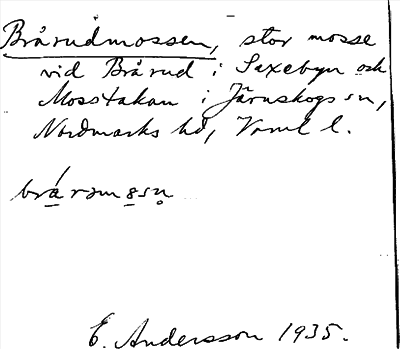 Brårudmossen, stor mosse
vid Brårud i Saxebyn och
Mosstakan i Järnskogs sn,
Nordmarks hd, Vrml l.
bráromosn̥
E. Andersson 1935.